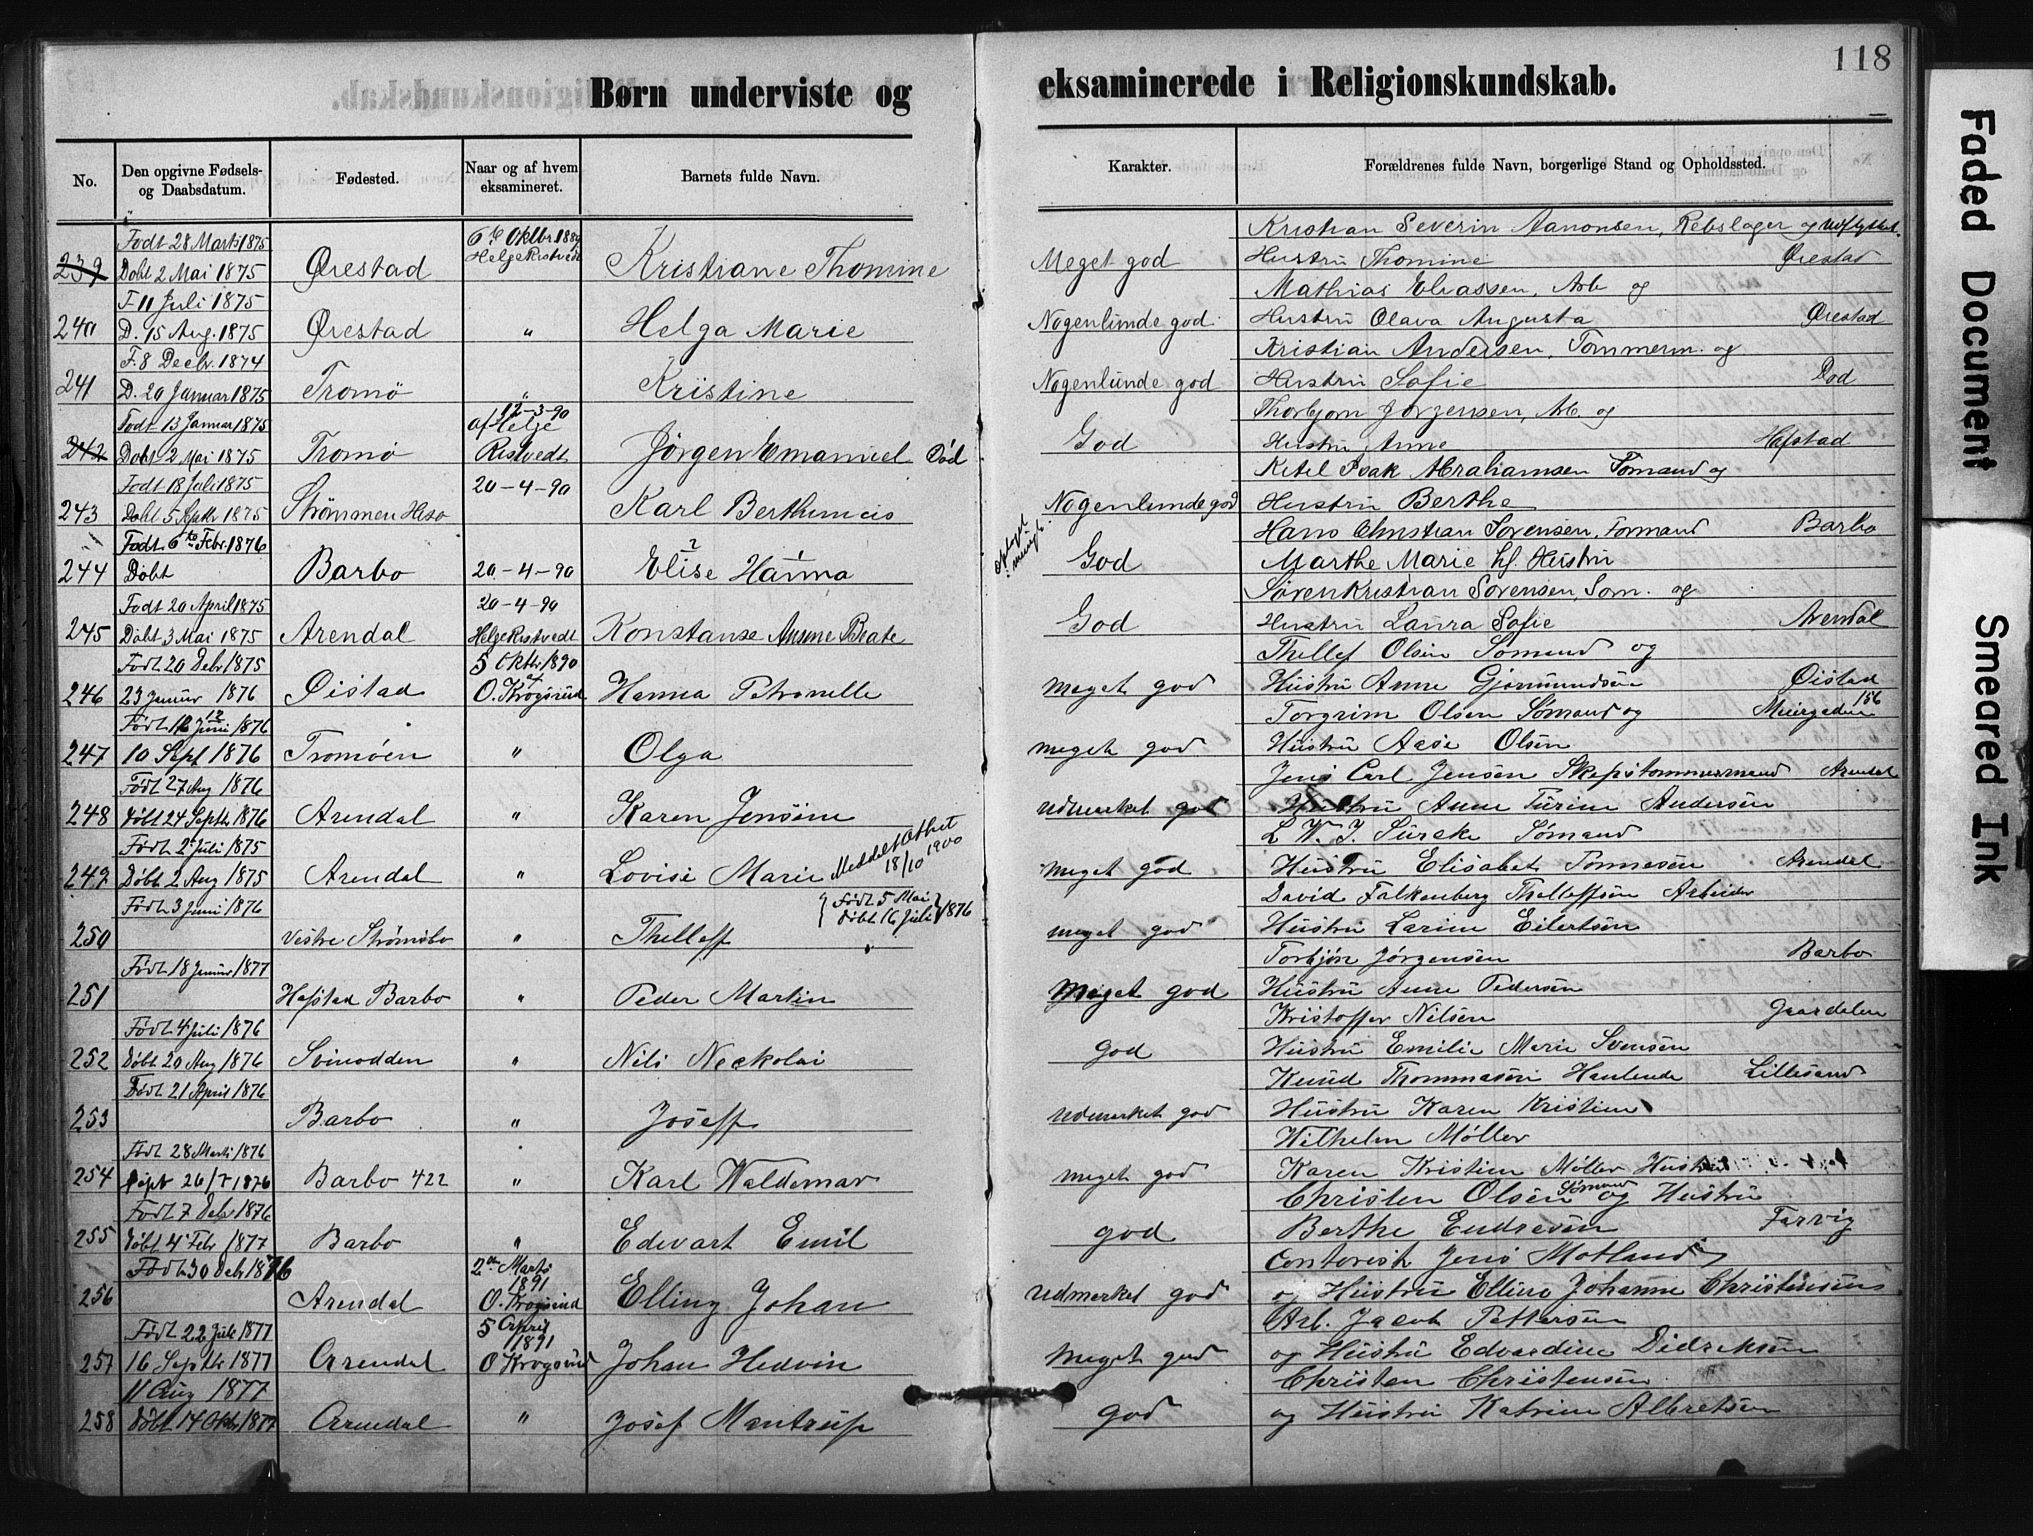 118
Børn underviste og eksaminerede i Religionskundskab.
No. Den opgivne Fødsels- og Daabsdatum. Fødested. Naar og af hvem eksamineret. Barnets fulde Navn. Karakter. Forældrenes fulde Navn, borgerlige Stand og Opholdssted.
Født 28 Marts 1875 6te Oktbr. 1889 Kristian Severin Aanonsen, Rebslager og Udflyttet.
239 Døbt 2 Mai 1875 Ørestad Helge Ristvedt Kristiane Thomine Meget god Hustru Thomine Ørestad
F. 11 Juli 1875 Mathias Eliassen, Arb og
240 D. 15 Aug. 1875 Ørestad " Helga Marie Nogenlunde god. Hustru Olava Augusta Ørestad
F. 8 Decbr. 1874 Kristian Andersen, Tømmerm. og
241 D. 20 Januar 1875 Tromø " Kristine Nogenlunde god Hustru Sofie Død
Født 13 Januar 1875 12-3-90 af Helge Thorbjørn Jørgensen, Arb. og
242 Døbt 2 Mai 1875 Tromø Ristvedt Jørgen Emanuel Død God Hustru Anne Hafstad
Født 18 Juli 1875 20-4-90 Ketil Isak Abrahamsen Sømand og
243 Døbt 5 Septbr 1875 Strømmen Hisø Karl Berthineus Nogenlunde god Hustru Berthe
Født 6te Febr. 1876 Hans Christian Sørensen, Formand Barbo
244 Døbt Barbo 20-4-90 Elise Hanna God Marthe Marie hf. Hustru
Født 20 April 1875 20-4-90 Søren Kristian Sørensen, Søm. og
245 Døbt 3 Mai 1875 Arendal Helge Ristvedt Konstanse Aunne Beate God Hustru Laura Sofie Arendal
Født 20 Debr 1875 5 Oktbr 1890 Thellef Olsen Sømand og
246 23 Januar 1876 Øistad af O. Krogsrud Hanna Petronelle meget god Hustru Anne Gjermundsen Øistad
Født 16 Juni 1876 12 Torgrim Olsen Sømand og 156
247 10 Sept 1876 Tromøen " Olga meget god Hustru Aase Olsen
Født 27 Aug 1876 Jens Carl Jensen Skipstømmermand Arendal
248 Døbt 24 Septbr 1876 Arendal " Karen Jensine udmerket god Hustru Anne Turine Andersen
Født 2 Juli 1875 Meddelt Attest 18/10 1900 L W. J. Surcke Sømand
249 Døbt 2 Aug 1875 Arendal " Lovise Marie meget god Hustru Elisabet Tønnesen Arendal
Født 3 Juni 1876 {Født 5 Mai Døbt 16 Juli} 1876 David Falkenberg Thelleffsen Arbeider
250 Vestre Strømsbo " Thelleff meget god Hustru Larine Eilertsen
Født 18 Januar 1877 Torbjørn Jørgensen Barbo
251 Hafstad Barbo " Peder Martin Meget god Hustru Anne Pedersen
Født 4 Juli 1876 Kristoffer Nilsen Gaardalen
252 Døbt 20 Aug 1876 Svinodden " Nils Neckolai god Hustru Emilie Marie Svensen
Født 21 April 1876 Knud Thommasen Hanlende Lillesand
253 Barbo " Joseff udmerket god Hustru Karen Kristine
Født 28 Marts 1876 Wilhelm Møller
254 Døpt 26/7 1876 Barbo 422 " Karl Waldemar meget god Karen Kristine Møller Hustru
Født 7 Debr 1876 Christen Olsen Sømand og Hustru
255 Døbt 4 Febr 1877 Barbo " Edevart Emil god Berthe Endresen Farvig
Født 30 Debr 1876 2den Marts 1891 Contorist Jens Motland
256 Arendal O. Krogsrud Elling Johan Udmerket god og Hustru Elline Johanne Christensen
Født 22 Juli 1877 5 April 1891 Arb. Jacob Pettersen
257 16 Septbr 1877 Arendal O Krogsrud Johan Hedvin Meget god og Hustru Edvardine Didreksen
11 Aug 1877 Christen Christensen
258 Døbt 14 Oktbr 1877 Arendal " Josef Mentrup god og Hustru Katrine Albretsen
Faded Document
Smeared Ink